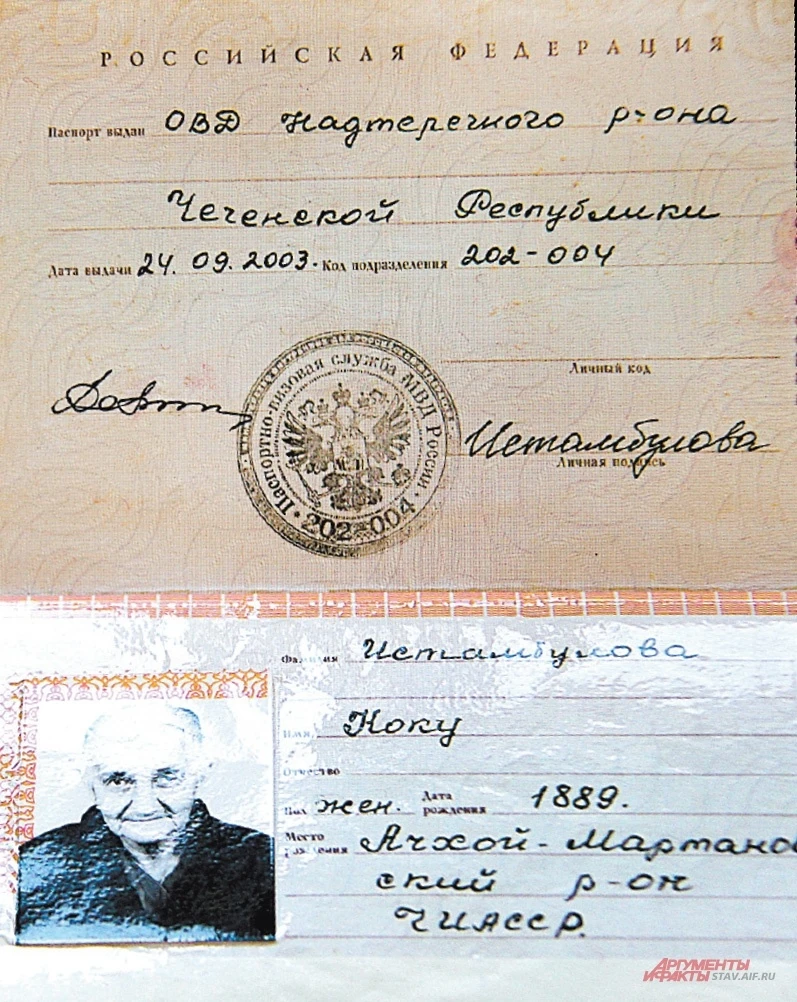 РОССИЙСКАЯ ФЕДЕРАЦИЯ
Паспорт выдан ОВД Надтеречного р-она
Чеченской Республики
Дата выдачи 24. 09. 2003. Код подразделения 202-004
Личный код
Паспортно-визовая служба МВД России
202-004
Истамбулова
Личная подпись
Фамилия Истамбулова
Имя Коку
Отчество
Пол жен. Дата рождения 1889.
Место рождения Ачхой-Мартанов
ский р-он
ЧИАССР.
АРГУМЕНТЫ
И ФАКТЫ STAV.AIF.RU